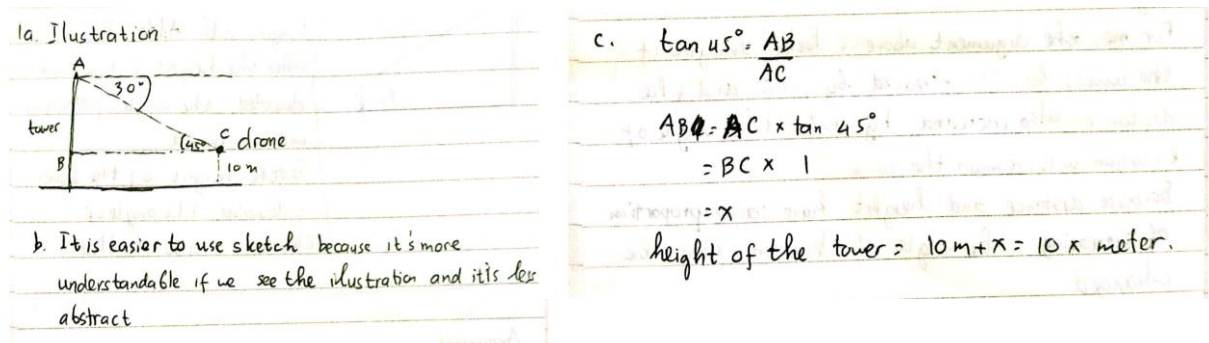 1a. Ilustration
A
30°
tower
45°
C drone
B
10 m
b. It is easier to use sketch because it's more
understandable if we see the ilustration and it's less
abstract
c. tan 45° = AB
AC
AB = AC x tan 45°
= BC x 1
= x
height of the tower = 10 m + x = 10 x meter.